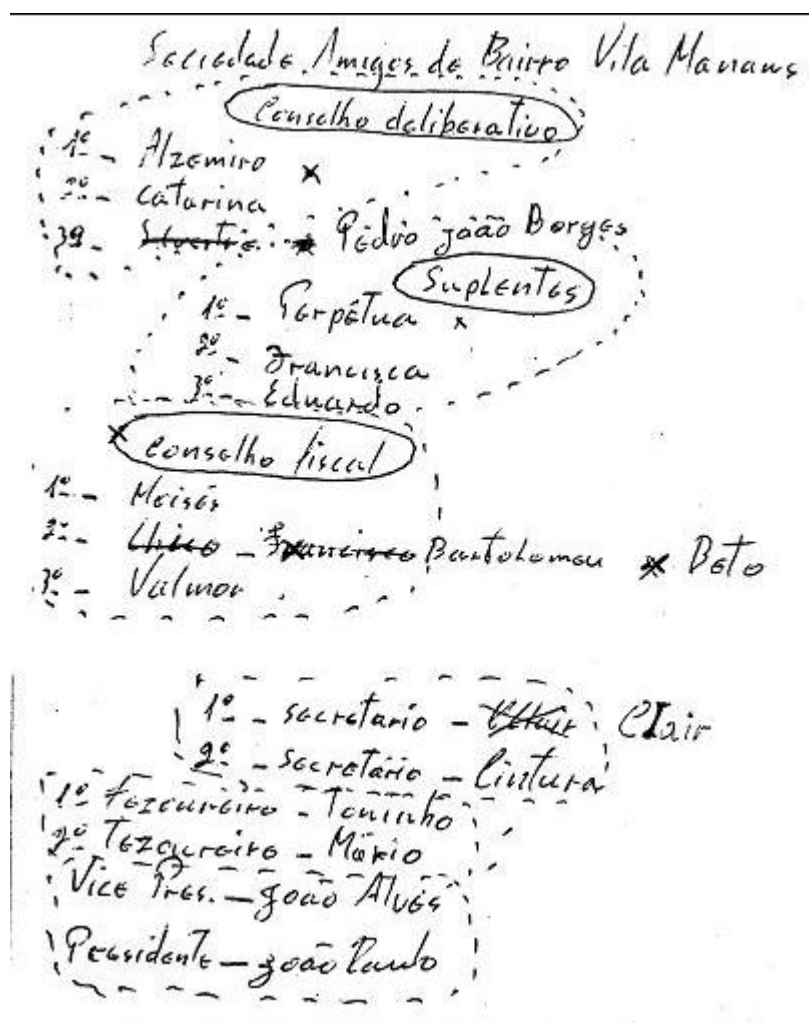 Sociedade Amigos de Bairro Vila Manaus
Conselho deliberativo
1º - Alzemiro x
2º - Catarina
3º - Silvestre x Pedro joão Borges
Suplentes
1º - Perpétua x
2º - Francisca
3º - Eduardo
x Conselho fiscal
1º - Moisés
2º - Chico - Francisco Bartolomeu x Beto
3º - Valmor
1º - secretario - Clair
2º - Secretário - Cintura
1º Tezoureiro - Toninho
2º Tezoureiro - Mário
Vice Pres. - joão Alves
Presidente - joão Paulo